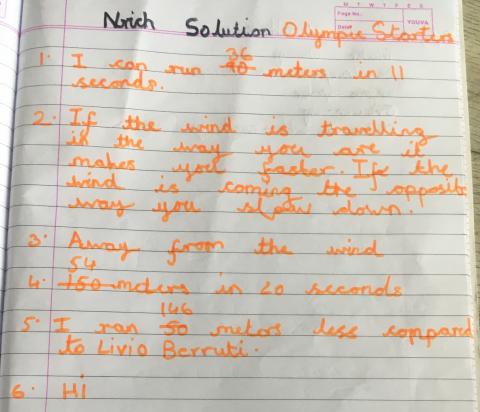 M T W T F S S
Page No.:
Date:
YOUVA
Nrich Solution Olympic Starters
36
1. I can run 90 meters in 11
seconds.
2. If the wind is travelling
in the way you are it
makes you faster. If the
wind is coming the opposite
way you slow down.
3. Away from the wind
54
4. 150 meters in 20 seconds
146
5. I ran 50 meters less compared
to Livio Berruti.
6. Hi